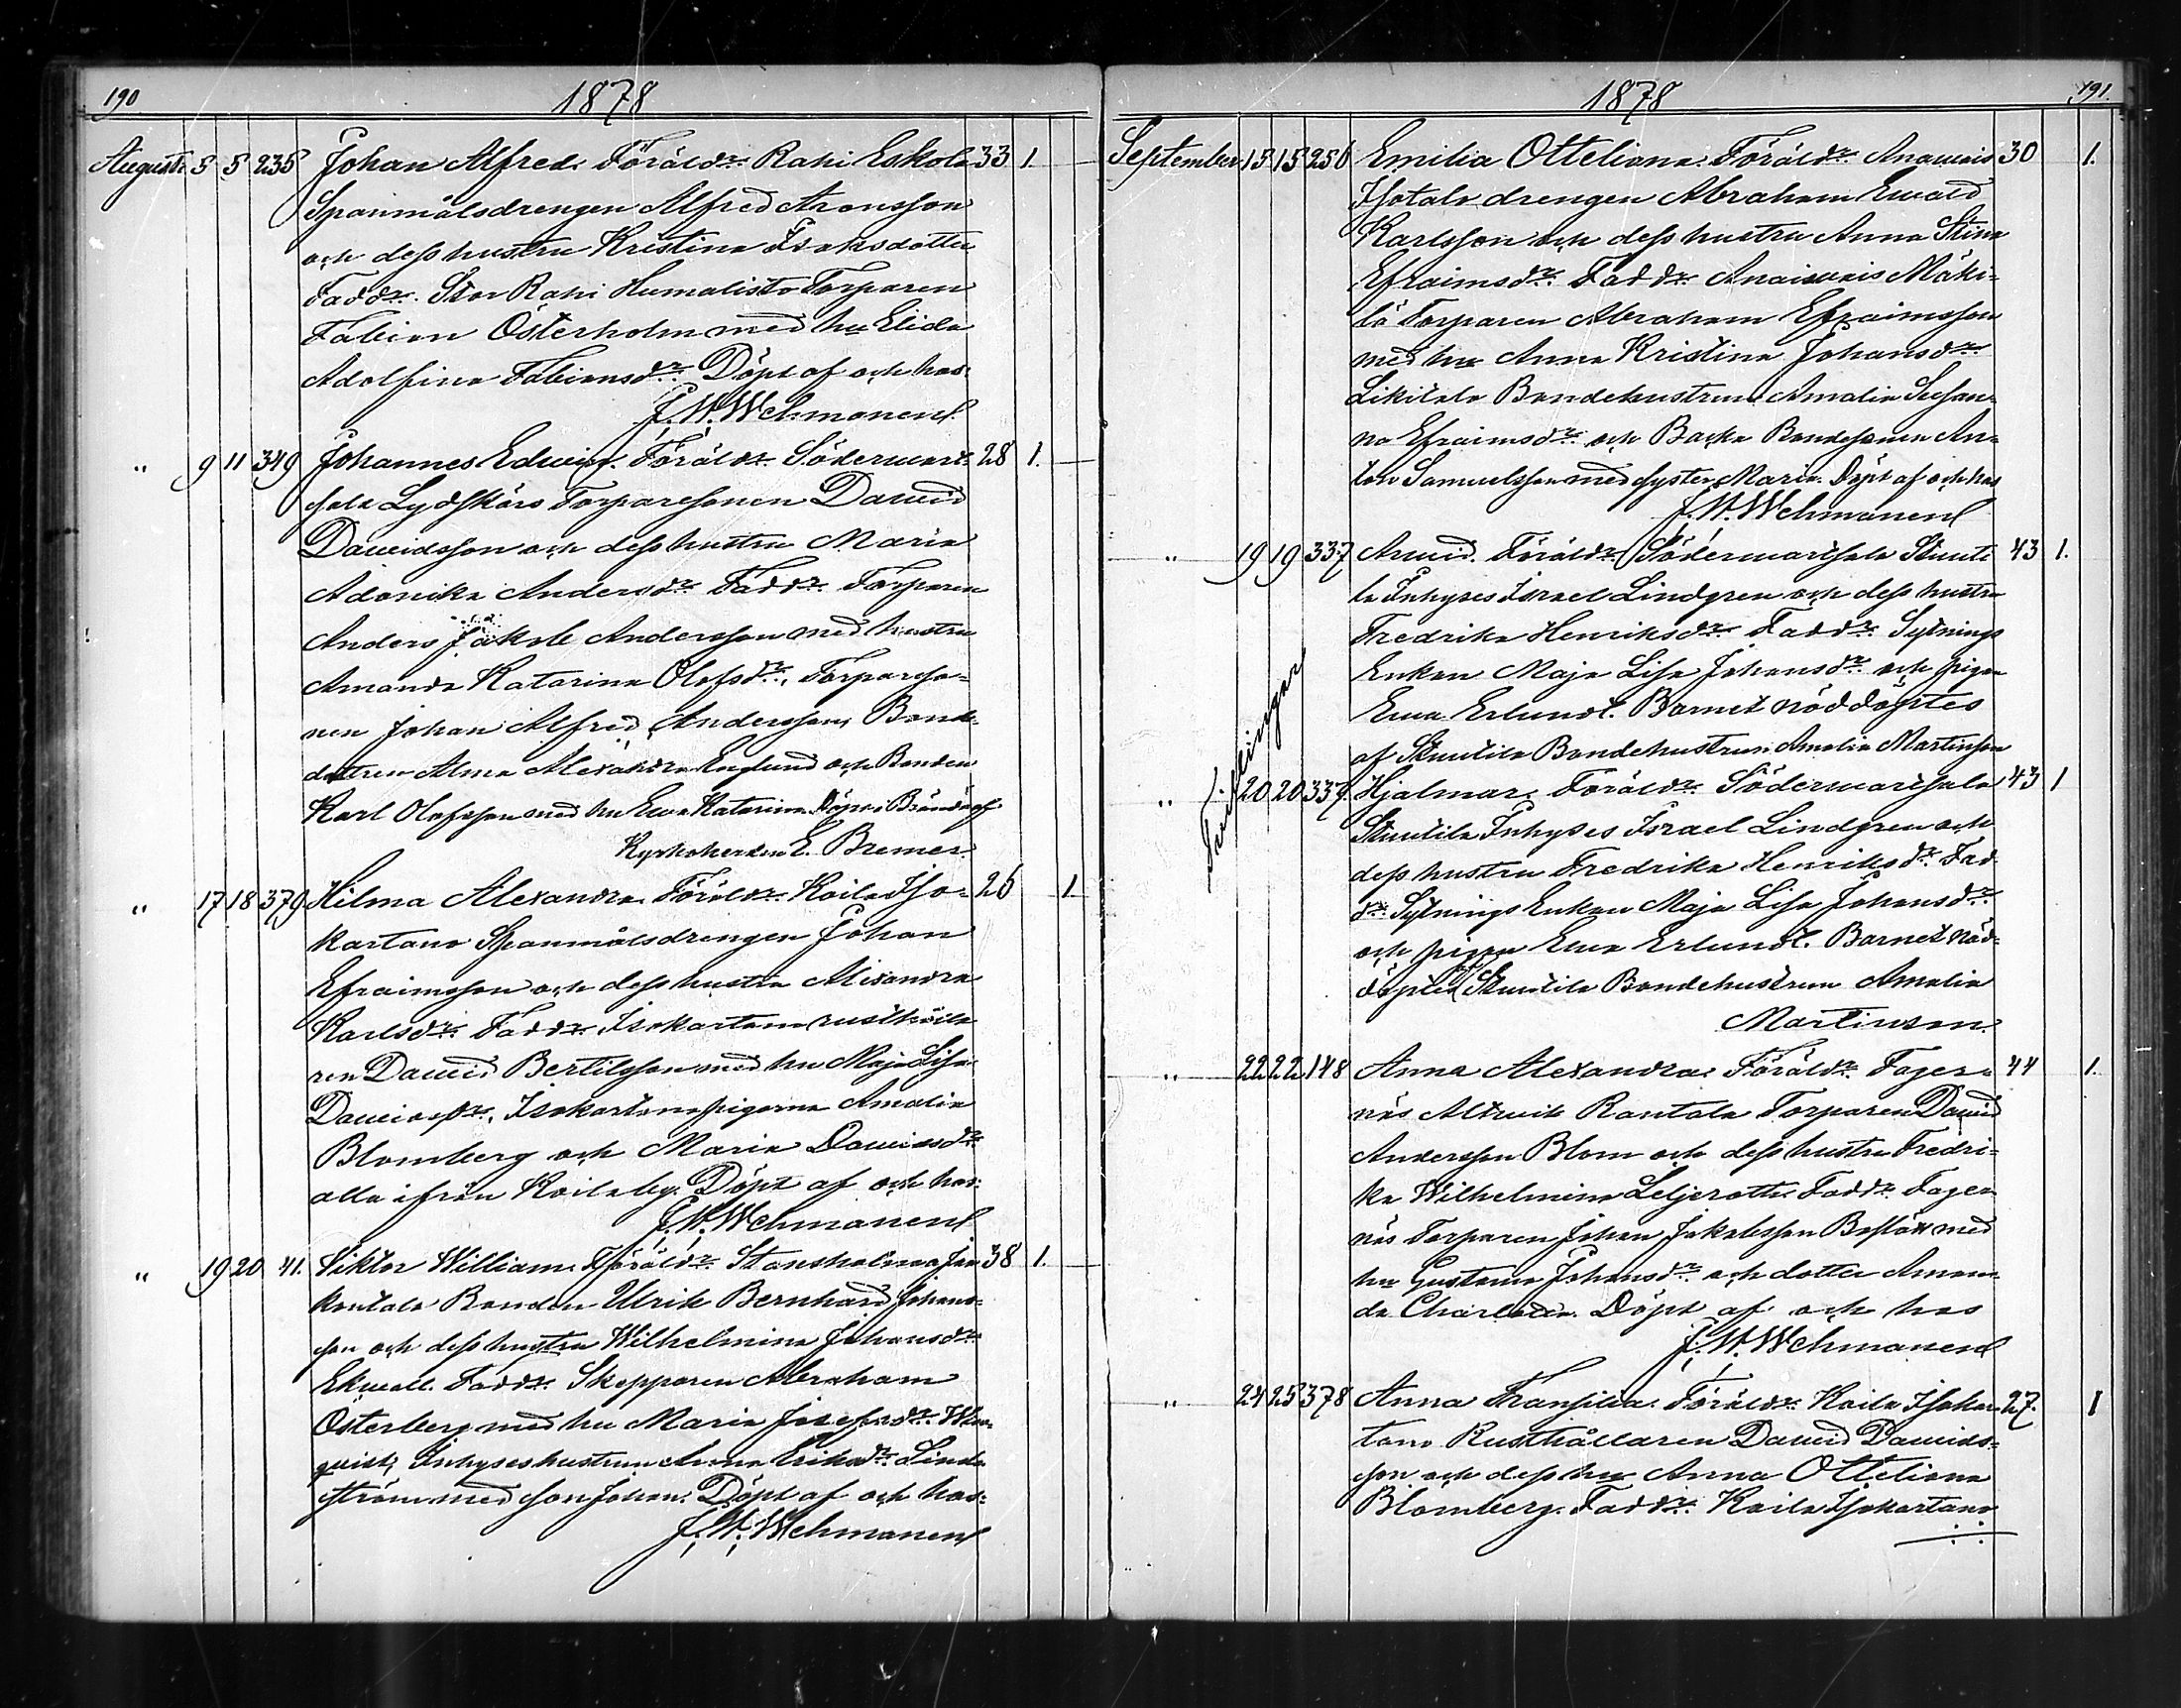 190
1878
Augusti 5 5 235 Johan Alfred. Föräldr. Rahi Eskola 33 1.
Spanmålsdrengen Alfred Aronsson
och dess hustru Kristina Isaksdotter
Faddr. Stor Rahi Humalisto Torparen
Fabian Österholm med hu Elida
Adolfina Fabiansdr. Döpt af och hos:
J. W. Wehmanen
" 9 11 349 Johannes Edwin. Föräldr. Söderwart- 28 1.
sala Lydskärs Torparesonen Dawid
Dawidsson och dess hustru Maria
Adonika Andersdr. Faddr. Torparen
Anders Jakob Andersson med hustru
Amanda Katarina Olofsdr., Torpareso-
nen Johan Alfred Andersson, Bonde-
dottren Alma Alexandra Englund och Bonden
Karl Olofsson med hu Ewa Katarina. Döpt i Brändö af
Kyrkoherden E. Bremer.
" 17 18 379 Hilma Alexandra. Föräldr. Kaila Iso- 26 1
kartano Spanmålsdrengen Johan
Efraimsson och dess hustru Alexandra
Karlsdr. Faddr. Isokartano rusthålla
ren Dawid Bertilsson med hu Maja Lisa
Dawidsdr., Isokartano pigorna Amalia
Blomberg och Maria Dawidsdr.
alla ifrån Kaila by. Döpt af och hos:
J. W. Wehmanen
" 19 20 41. Viktor William. Föräldr. Stansholma 38 1.
Bonden Ulrik Bernhard Johans-
son och dess hustru Wilhelmina Johansdr.
Ekwall. Faddr. Skepparen Abraham
Österberg med hu Maria Josefsdr.
quist, Inhyseshustrun Anna Eriksdr. Lind
ström med son Johan. Döpt af och hos:
J. W. Wehmanen
1878
191.
September 15 15 256 Emilia Otteliana. Föräldr. Anawais 30 1.
Isotalo drengen Abraham Ewald
Karlsson och dess hustru Anna Stina
Efraimsdr. Faddr. Anaiwais Mäki-
lä Torparen Abraham Efraimsson
med hu Anna Kristina Johansdr.
Likitalo Bondehustrun Amalia Susan-
na Efraimsdr. och Backa Bondesonen An-
ton Samuelsson med syster Maria. Döpt af och hos
J. W. Wehmanen
" 19 19 337 Arwid. Föräldr. Söderwartsala Stuuti 43 1.
la Inhyses Israel Lindgren och dess hustru
Fredrika Henriksdr. Faddr. Sytnings
Enkan Maja Lisa Johansdr. och pigan
Ewa Erlundt. Barnet nöddöptes
af Stuutila Bondehustrun Amalia Martinson
Tvillingar
" 20 20 337. Hjalmar. Föräldr. Söderwartsala 43 1
Stuutila Inhyses Israel Lindgren och
dess hustru Fredrika Henriksdr. Fad-
dr. Sytnings Enkan Maja Lisa Johansdr.
och pigan Ewa Erlundt. Barnet nöd-
döptes af Stuutila Bondehustrun Amalia
Martinson.
" 22 22 148 Anna Alexandra. Föräldr. Fager- 44 1.
näs Rantala Torparen Dawid
Andersson Blom och dess hustru Fredri-
ka Wilhelmina Liljeroth. Faddr. Fager
näs Torparen Johan Jakobsson med
hu Gustawa Johansdr. och dotter Aman-
da Charlotta. Döpt af och hos
J. W. Wehmanen
" 24 25 378 Anna Fransilia. Föräldr. Kaila Isokar 27. 1
tano Rusthållaren Dawid Dawids-
son och dess hu Anna Otteliana
Blomberg. Faddr. Kaila Isokartano